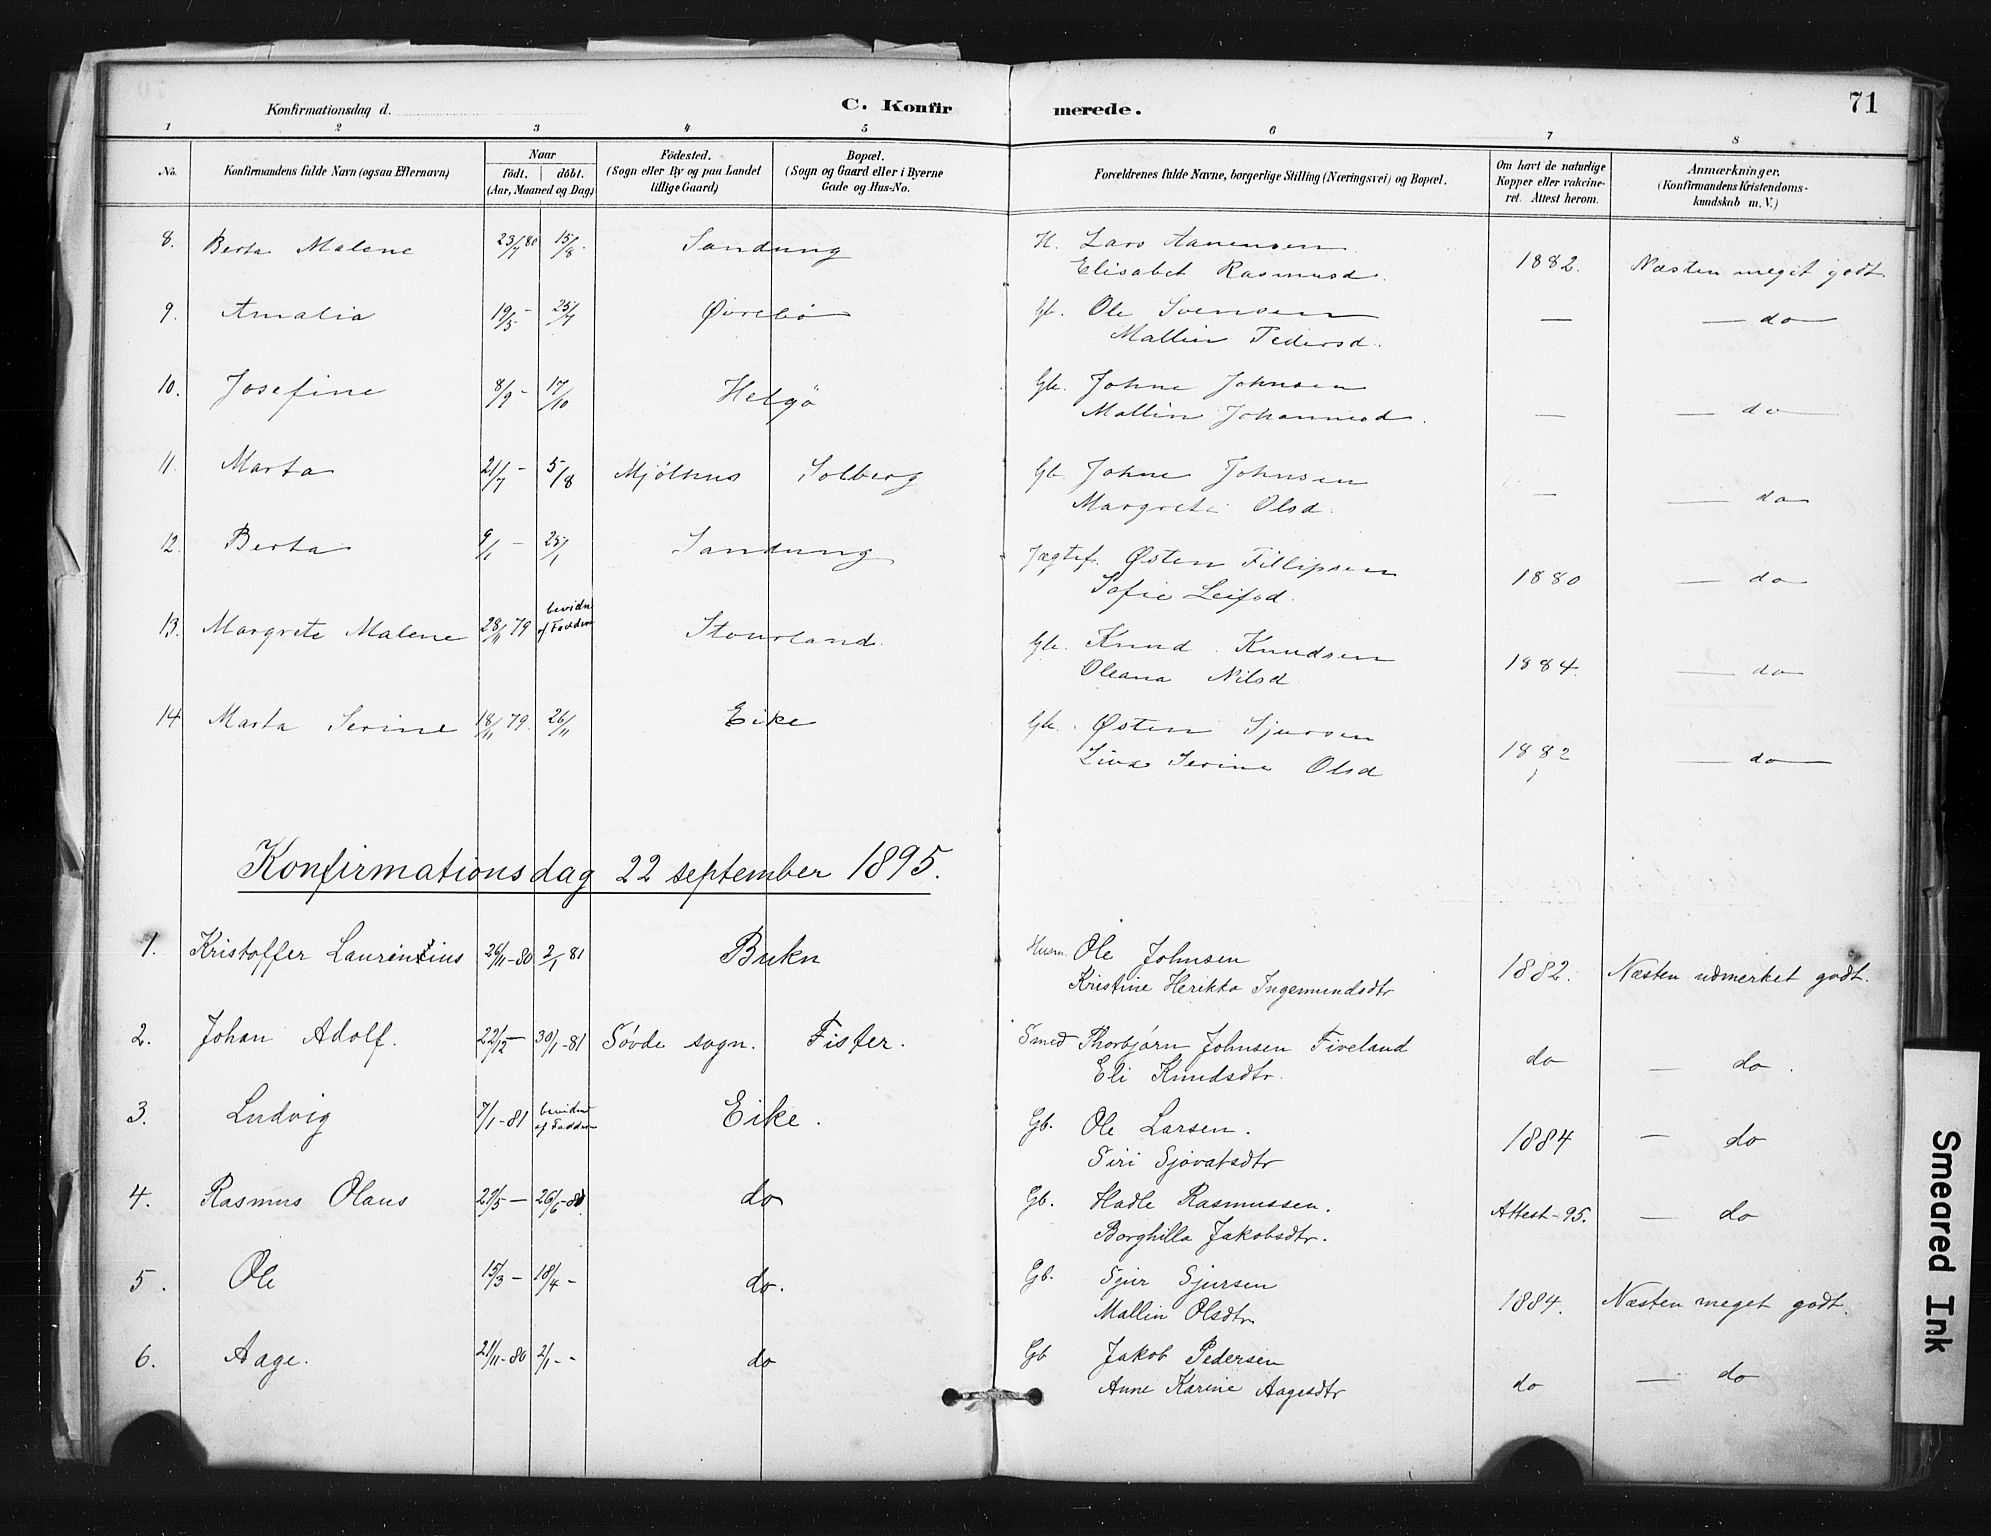 Konfirmationsdag d. C. Konfirmerede. 71
1 2 3 4 5 6 7 8
No. Konfirmandens fulde Navn (ogsaa Efternavn) Naar født. døbt. (Aar, Maaned og Dag) Fødested. (Sogn eller By og paa Landet tillige Gaard) Bopæl. (Sogn og Gaard eller i Byerne Gade og Hus-No. Forældrenes fulde Navne, borgerlige Stilling (Næringsvei) og Bopæl. Om havt de naturlige Kopper eller vakcineret. Attest herom. Anmærkninger. (Konfirmandens Kristendomskundskab m. V.)
8. Berta Malene 23/7 80 15/8 - Sandung H. Lars Aanensen 1882. Næsten meget godt
Elisabet Rasmusd.
9. Amalia 19/5 - 25/7 Øvrebø Gb. Ole Svensen — — do —
Mallin Pedersd.
10. Josefine 8/9 - 17/10 Helgö Gb. Johne Johnsen — — do —
Mallin Johannesd.
11. Marta 21/7 - 5/8 Mjölhus Solberg Gb. Johne Johnsen — — do —
Margrete Olsd.
12. Berta 9/1 - 25/1 Sandung Jægtef. Østen Fillipsen 1880 — do —
Sofie Leifsd.
13. Margrete Malene 28/11 79 bevidn af Faddere Stourland. Gb. Knud Knudsen 1884. — do —
Oleana Nilsd.
14 Marta Serine 18/11 79. 26/11 Eike Gb. Østen Sjursen 1882 — do —
Liva Serine Olsd
Konfirmationsdag 22 september 1895.
1. Kristoffer Laurentius 26/11-80 2/1 81 Bukn Husm. Ole Johnsen 1882. Næsten udmerket godt.
Kristine Herikka Ingemundsdtr
2. Johan Adolf. 22/12 — 30/1-81 Søvde sogn. Fister. Smed Thorbjørn Johnsen Fiveland do — do.
Eli Knudsdtr.
3. Ludvig 7/1-81 bevidnet af Faddere Eike. Gb. Ole Larsen. 1884 — do
Siri Sjovatsdtr
4. Rasmus Olaus 27/5 — 26/6-81 do Gb. Hadle Rasmussen. Attest-95. — do
Borghilla Jakobsdtr.
5. Ole 15/3 — 18/4 - do. Gb. Sjur Sjursen 1884. Næsten meget godt.
Mallin Olsdtr
6. Aage. 21/11-80 2/1 - - do Gb Jakob Pedersen do — do
Anne Karine Aagesdtr
Smeared Ink